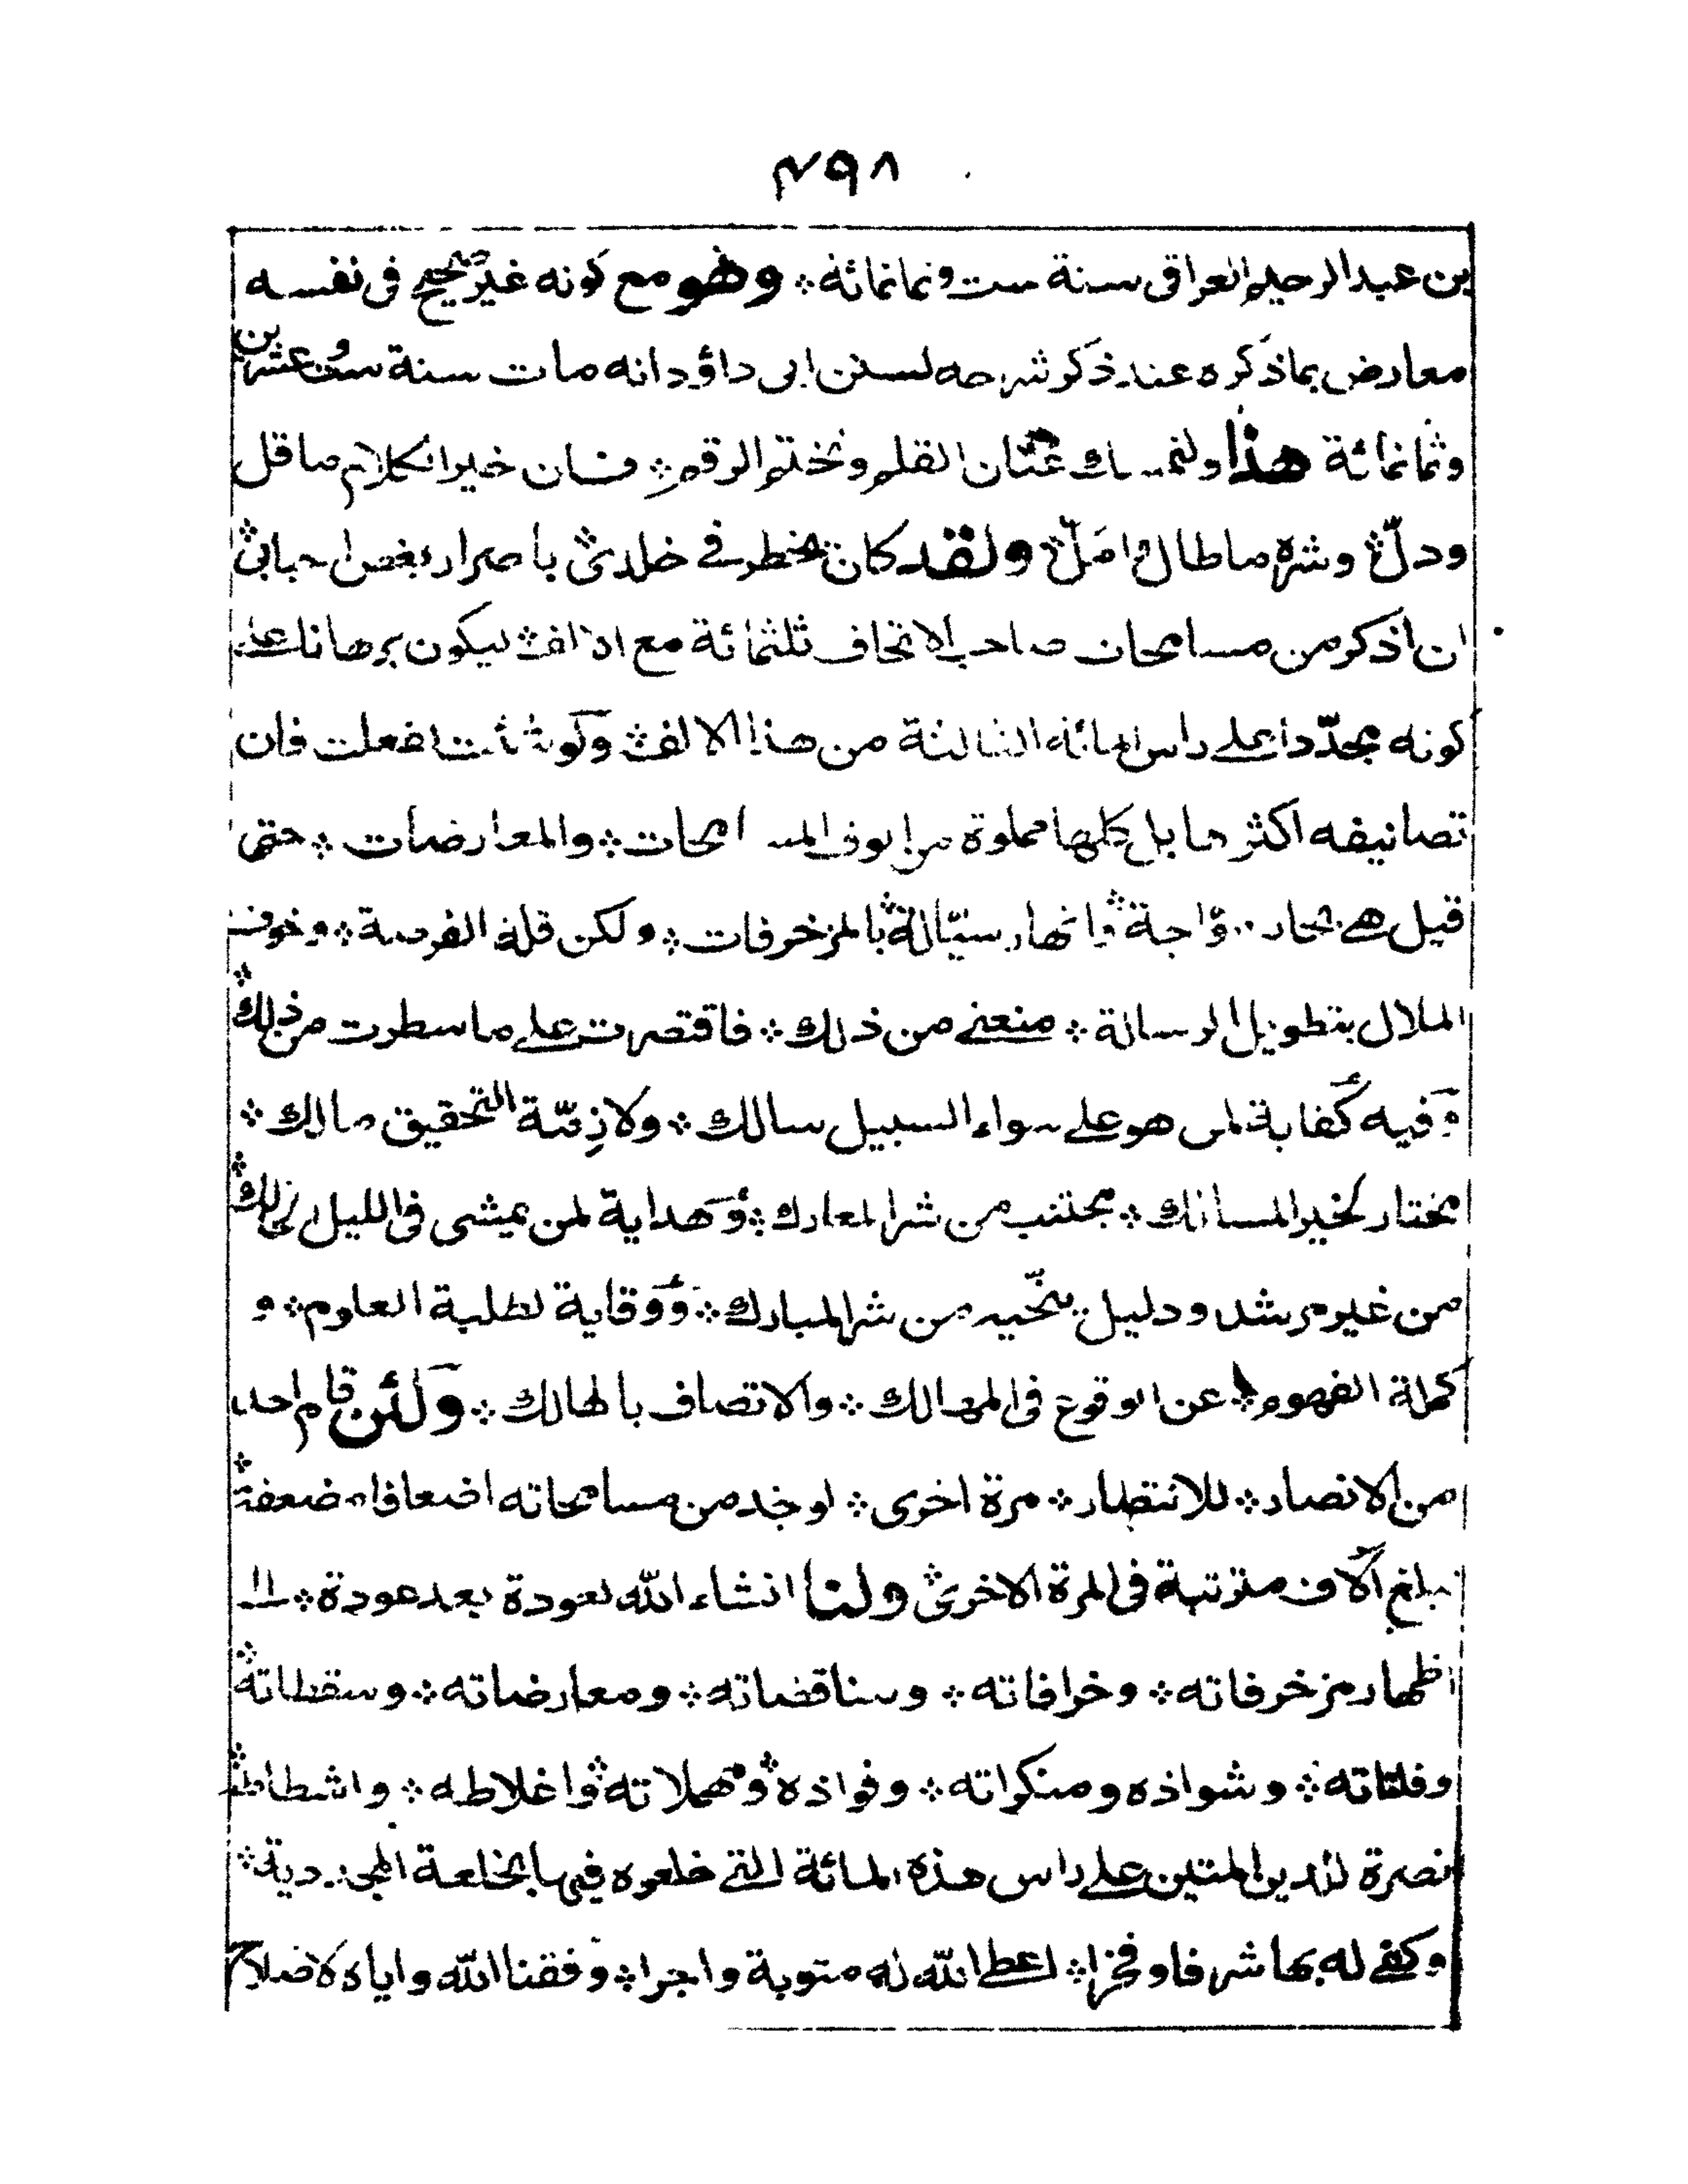 ٤٩٨
بن عبد الرحيم العراقى سنة ست وثمانمائة ⁘ وهو مع كونه غير صحيح فى نفسه
معارض بما ذكره عند ذكر شرحه لسنن ابى داؤد انه مات سنة ست وعشرين
وثمانمائة هذا ولنمسك عنان القلم ونختم الرقم ⁘ فان خير الكلام ما قل
ودلّ ⁘ وشره ما طال وامَلّ ⁘ ولقد كان يخطر فى خلدى ⁘ باصرار بعض احبابى ⁘
ان اذكر من مسامحات صاحب الاتحاف ثلثمائة مع الالف ⁘ ليكون برهانا على
كونه مجدّدا على راس المائة الثالثة من هذا الالف ⁘ ولو شئت لفعلت فان
تصانيفه اكثرها بل كلها مملوة من الوف المسامحات ⁘ والمعارضات ⁘ حتى
قيل هى بحار موّاجة ⁘ وانهار سيّالة ⁘ بالمزخرفات ⁘ ولكن قلة الفرصة ⁘ وخوف
الملال بتطويل الرسالة ⁘ منعنى من ذلك ⁘ فاقتصرت على ما سطرت من ذلك ⁘
وفيه كفاية لمن هو على سواء السبيل سالك ⁘ ولازمّة التحقيق مالك ⁘
مختار لخير المسالك ⁘ مجتنب من شر المعارك ⁘ وهداية لمن يمشى فى الليل الحالك ⁘
من غير مرشد ودليل ينجّيه من شر المبارك ⁘ ووقاية لطلبة العلوم ⁘ و
كملة الفهوم ⁘ عن الوقوع فى المهالك ⁘ والاتصاف بالهالك ⁘ ولئن قام احد
من الانصار ⁘ للانتصار ⁘ مرة اخرى ⁘ اوخذ من مسامحاته اضعافا مضعفة
تبلغ آلاف مترتبة فى المرة الاخرى ⁘ ولنا انشاء الله لعودة بعد عودة ⁘ الى
اظهار مزخرفاته ⁘ وخرافاته ⁘ ومناقضاته ⁘ ومعارضاته ⁘ وسقطاته ⁘
وفلتاته ⁘ وشواذه ومنكراته ⁘ وفواذه ⁘ ومهملاته ⁘ واغلاطه ⁘ واشطاطه ⁘
نصرة للدين المتين على راس هذه المائة التى خلعوه فيها بالخلعة المجددية ⁘
وكفى له بها شرفا وفخرا ⁘ اعطا الله له مثوبة واجرا ⁘ وفقنا الله واياه لاصلاح